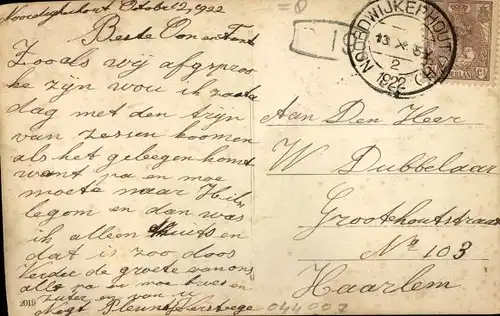 Noordwijkerhout October 12, 1922
Beste Oom en Tante
Zooals wij afgespro
ke zijn wou ik zoata
dag met den trijn
van zessen koomen
als het geleegen komt
want pa en moe
moete naar Hil
legom en dan was
ik alleen thuis en
dat is zoo doos
Verder de groete van ons
alle pa en moe broers en
zuster en van u
Nigt Pleuntje Verstege
2019
NOORDWIJKERHOUT
13 X
2
1922
Aan Den Heer
W Dubbelaar
Groothoutstraat
No 103
Haarlem
044007